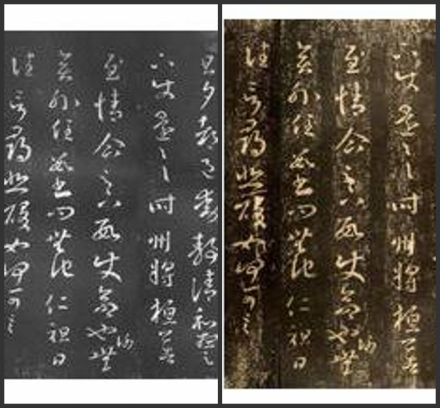 旦夕都邑動靜清和想足
下使還一一時州將桓公告
慰情企足下數使命也謝無
奕外任數書問無他仁祖日
往言尋悲酸如何可言
下使還一一時州將桓公告
慰情企足下數使命也謝無
奕外任數書問無他仁祖日
往言尋悲酸如何可言